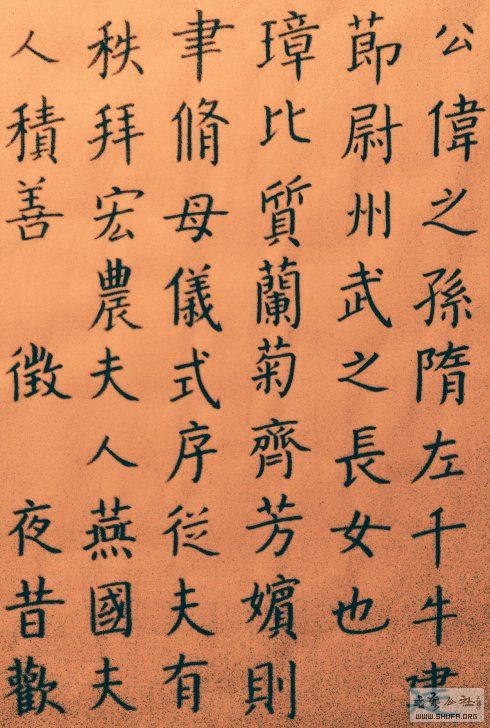 公偉之孫隋左千牛建
莭尉州武之長女也
璋比質蘭菊齊芳嬪則
聿脩母儀式序従夫有
秩拜宏農夫人燕國夫
人積善 徵 夜昔歡
WWW.SHUFA.ORG